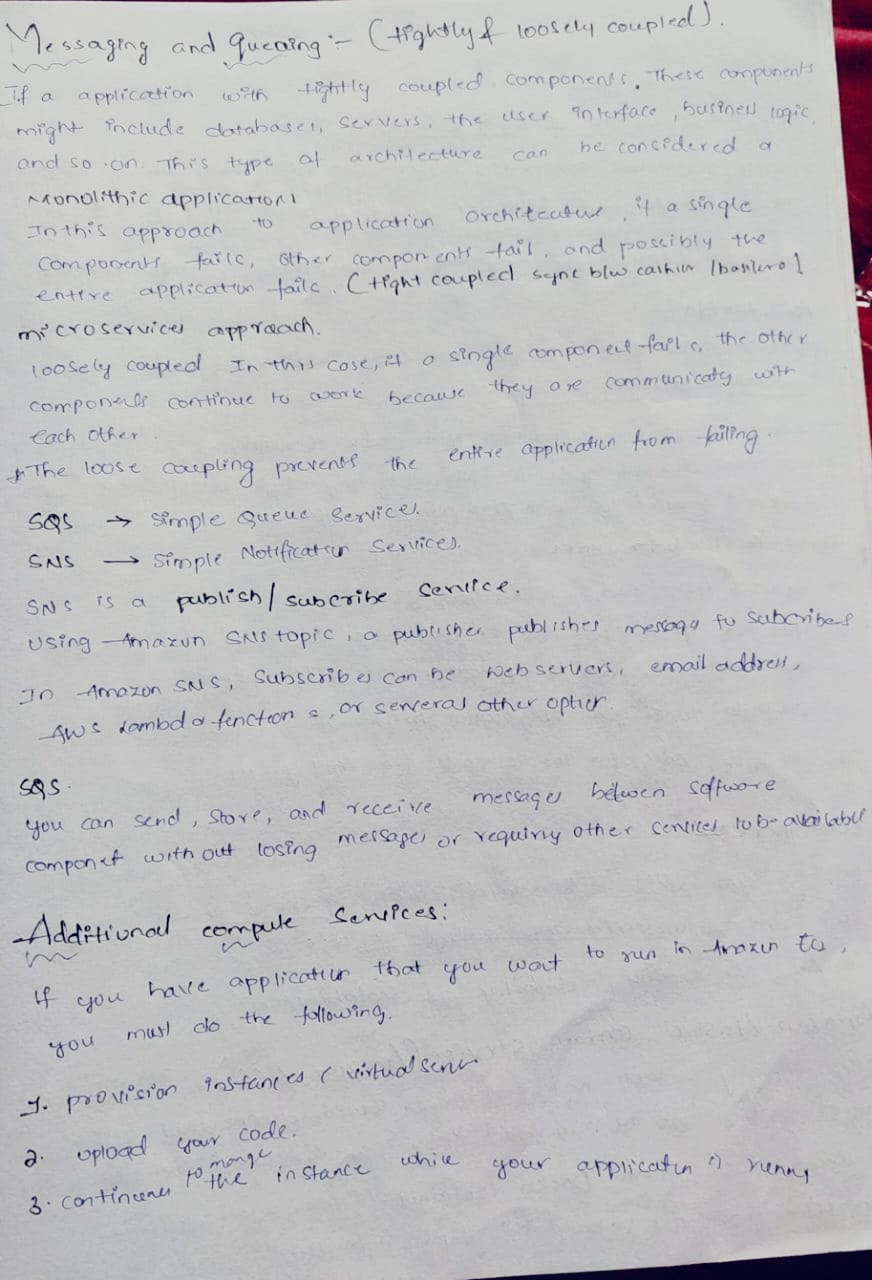 Messaging and Queuing :- (tightly & loosely coupled).
If a application with tightly coupled components. These components
might include databases, servers, the user interface, business logic,
and so on. This type of architecture can be considered a
Monolithic application
In this approach to application architecture, if a single
components fails, other components fail, and possibly the
entire application fails. (tight coupled sync b/w cashier / 
microservices approach.
loosely coupled In this case, if a single component fails, the other
components continue to work because they are communicaty with
each other.
* The loose coupling prevents the entire application from failing.
SQS → Simple Queue Service.
SNS → Simple Notification Services.
SNS is a publish/subcribe service.
Using Amazon SNS topic, a publisher publishes message to subcribers
In Amazon SNS, Subscribes can be web servers, email address,
AWS Lambda functions, or serveral other option.
SQS.
you can send, store, and receive messages between software
component with out losing messages or requiring other services to be available
Additional compute Services:
If you have application that you want to run in Amazon Ec2,
you must do the following.
1. provision instances (virtual server
2. upload your code.
3. continues to mange the instance while your application is runny